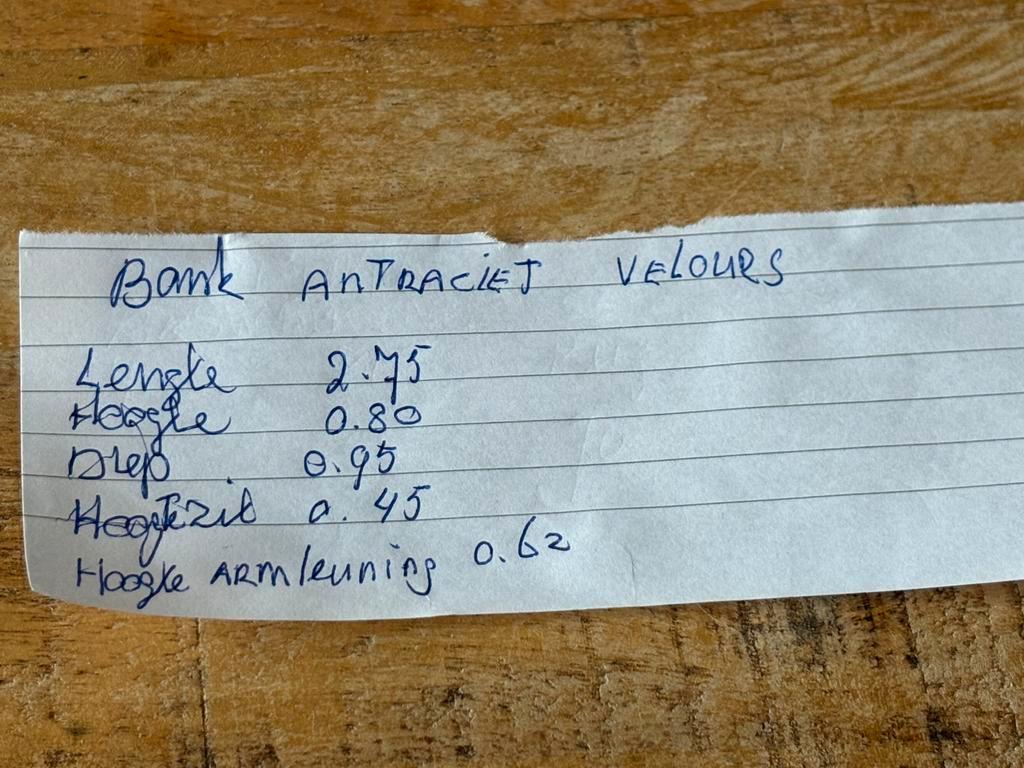 Bank ANTRACIET VELOURS
Lengte 2.75
Hoogte 0.80
Diep 0.95
Hoogtezit 0.45
Hoogte ARMleuning 0.62